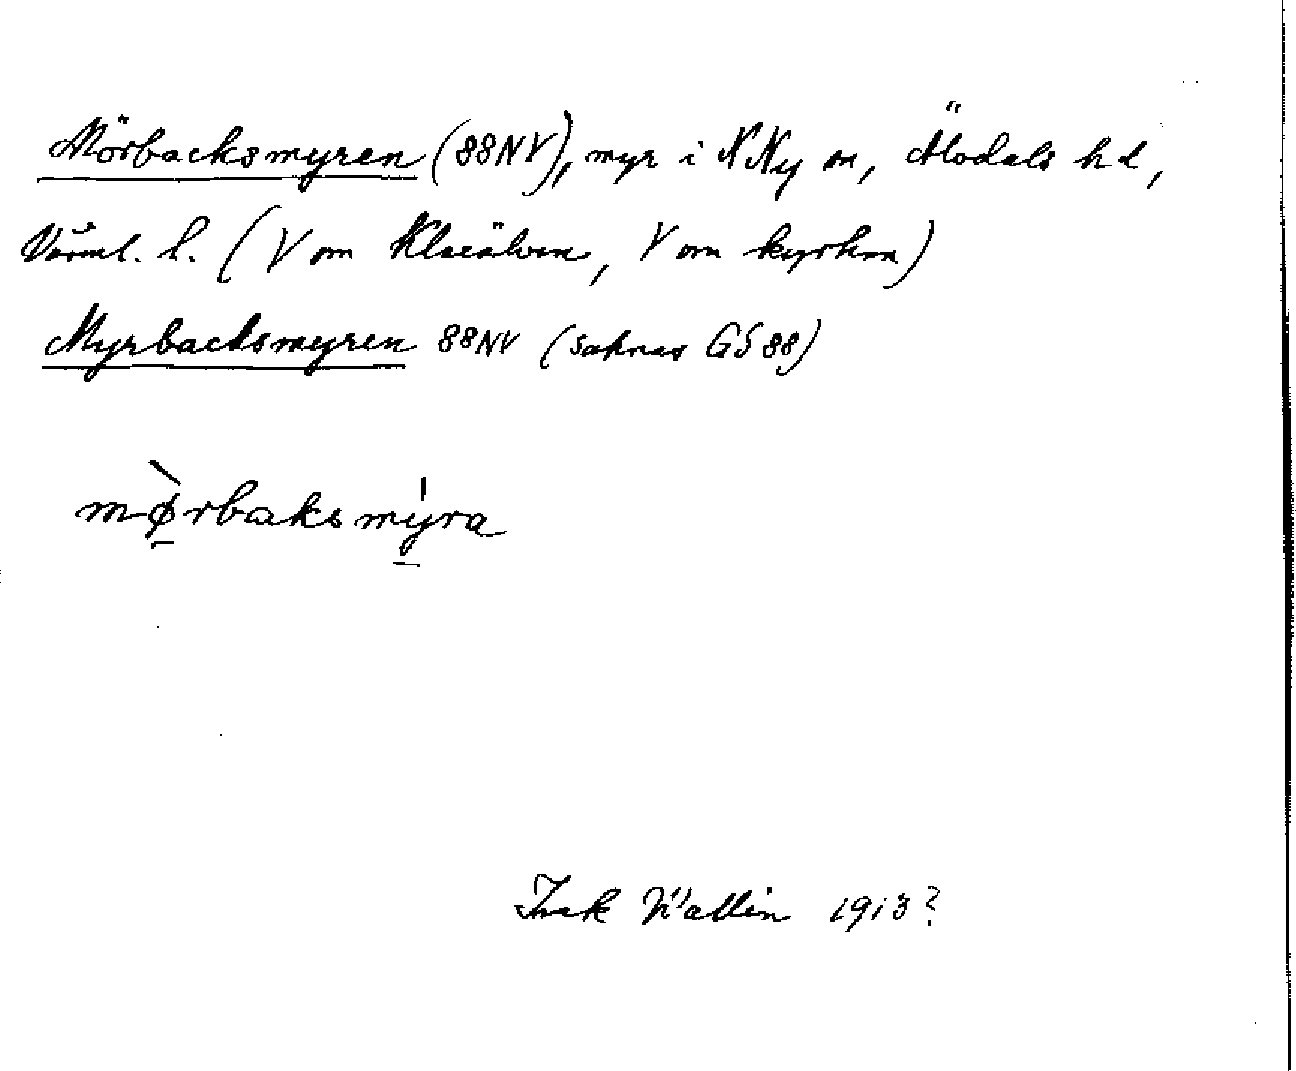 Mörbacksmyren (88NV), myr i N Ny sn, Älvdals hd,
Värml. l. (V om Klarälven, V om kyrkan)
Myrbacksmyren 88NV (saknas GS 88)
mø̀rbaksmýra
Inck Wallin 1913?